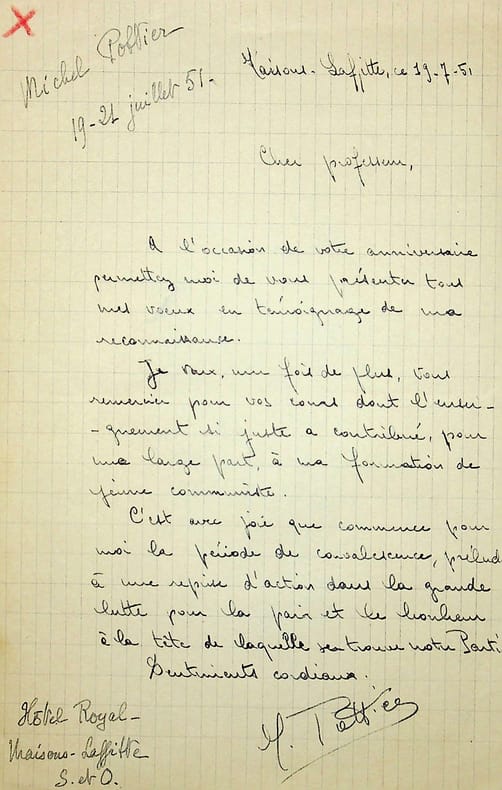 Michel Pottier
19-21 juillet 51-
Maisons-Laffitte, ce 19-7-51
Cher professeur,
A l'occasion de votre anniversaire
permettez moi de vous présenter tous
mes voeux en témoignage de ma
reconnaissance.
Je veux, une fois de plus, vous
remercier pour vos cours dont l'ensei-
-gnement si juste a contribué, pour
une large part, à ma formation de
jeune communiste.
C'est avec joie que commence pour
moi la période de convalescence, prélude
à une reprise d'action dans la grande
lutte pour la paix et le bonheur
à la tête de laquelle se trouve notre Parti
Sentiments cordiaux.
M. Pottier
Hôtel Royal-
Maisons-Laffitte
S. et O.